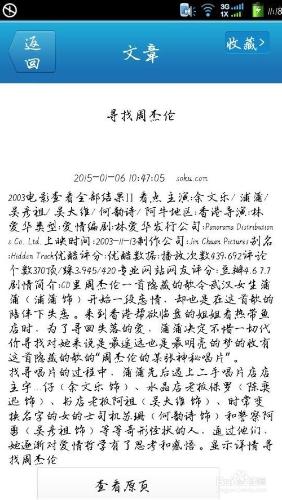 3G
1X
11:18
返回
文章
收藏>
寻找周杰伦
2015-01-06 10:47:05 soku.com
2003电影查看全部结果11 看点 主演:余文乐/ 蒲蒲/
吴彦祖/ 吴大维/ 何韵诗/ 阿牛地区:香港导演:林
爱华类型:爱情编剧:林爱华发行公司:Panorama Distribution
s Co. Ltd.上映时间:2003-11-13制作公司:Jin Chuan Pictures别名
:Hidden Track优酷评分:优酷数据:播放次数439,692评论
个数370顶/踩3,945/420专业网站网友评分:豆瓣4.6 7.7
剧情简介:CD里周杰伦一首隐藏的歌令武汉女生蒲
蒲（蒲蒲 饰）开始一段恋情，却也是在这首歌的
陪伴下失恋。来到香港帮欲临盆的姐姐看热带鱼
店时，为了寻回失落的爱，蒲蒲决定不惜一切代
价寻找对她来说是最遥远也是最明亮的梦的收有
这首隐藏的歌的“周杰伦的某张神秘唱片”。
找寻唱片的过程中，蒲蒲先后遇上二手唱片店店
主宇...仔（余文乐 饰）、水晶店老板保罗（陈奕
迅 饰）、书店老板阿祖（吴大维 饰）、时常变
换名字的女的士司机苏珊（何韵诗 饰）和警察阿
勇（吴彦祖 饰）等等奇形怪状的人，通过他们，
她逐渐对爱情哲学有了思考和感悟。显示详情 寻
找周杰伦
查看原页